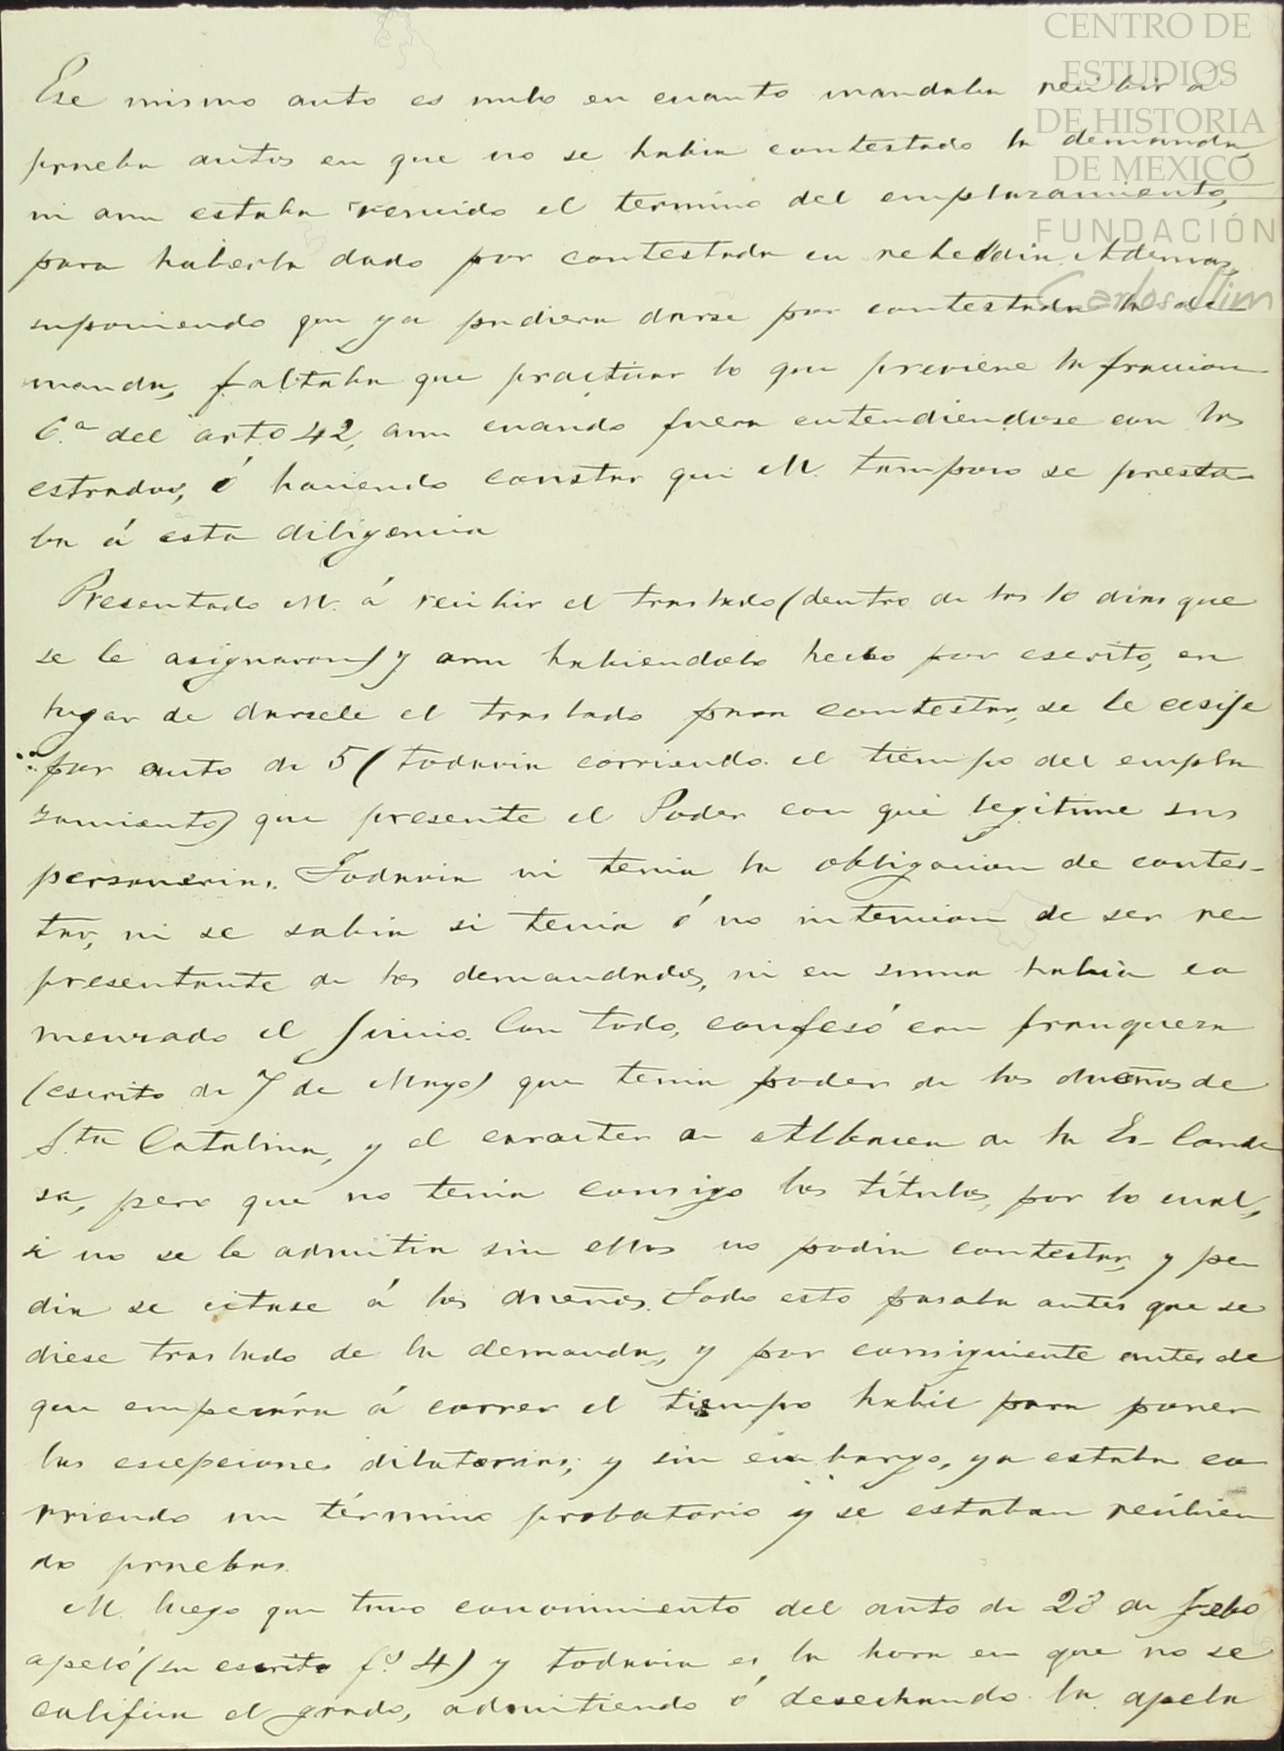 CENTRO DE
ESTUDIOS
DE HISTORIA
DE MEXICO
FUNDACIÓN
Carlos Slim
Ese mismo auto es nulo en cuanto mandaba recibir a
prueba autos en que no se habia contestado la demanda,
ni aun estaba vencido el termino del emplazamiento,
para haberla dado por contestada en rebeldia. Ademas,
suponiendo que ya pudiera darse por contestada la de
manda, faltaba que practicar lo que previene la fraccion
6.a del arto 42, aun cuando fuera entendiendose con los
estrados, ó haciendo constar que M. tampoco se presta-
ba á esta diligencia
Presentado M. á recibir el traslado (dentro de los 10 dias que
se le asignaron) y aun habiendolo hecho por escrito, en
lugar de darsele el traslado para contestar, se le ecsije
por auto de 5 (todavia corriendo el tiempo del empla
zamiento) que presente el Poder con que legitime sus
personerias. Todavia ni tenia la obligacion de contes-
tar, ni se sabia si tenia ó no intencion de ser re
presentante de los demandados, ni en suma habia co
menzado el juicio. Con todo, confesó con franqueza
(escrito de 7 de Mayo) que tenia poder de los dueños de
Sta Catalina, y el caracter de Albacea de la Ex-Conde
sa, pero que no tenia consigo los títulos, por lo cual,
si no se le admitia sin ellos no podia contestar, y pe
dia se citase á los dueños. Todo esto pasaba antes que se
diese traslado de la demanda, y por consiguiente antes de
que empezára á correr el tiempo habil para poner
las escepciones dilatorias; y sin embargo, ya estaba co
rriendo un término probatorio y se estaban recibien
do pruebas.
M. luego que tuvo conocimiento del auto de 28 de Febo
apeló (su escrito fs 4) y todavia es la hora en que no se
califica el grado, admitiendo ó desechando la apela